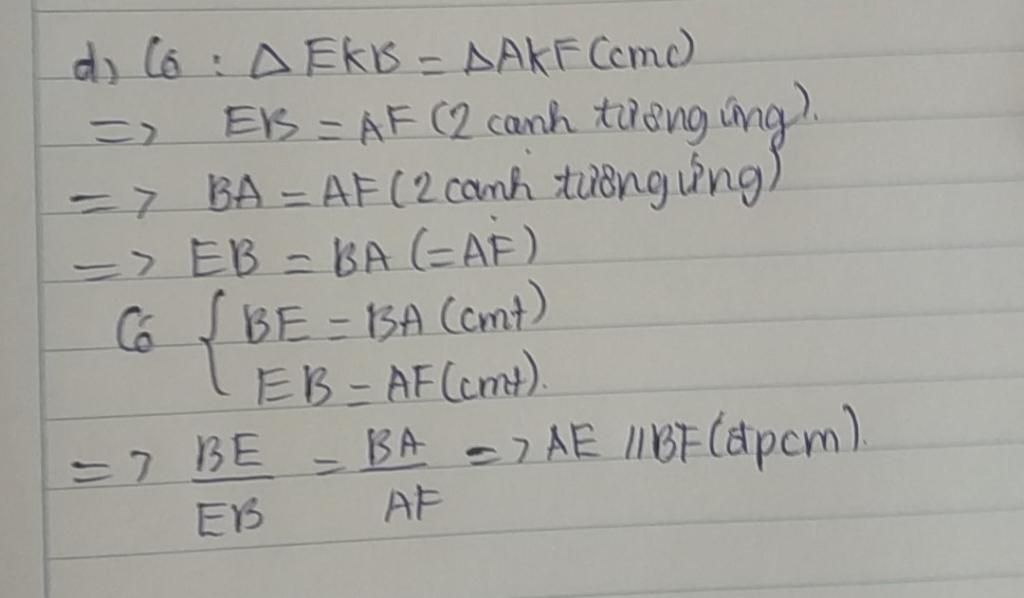 d) Có : Δ EKB = ΔAKF (cmc)
=> EB = AF (2 cạnh tương ứng).
=> BA = AF (2 cạnh tương ứng)
=> EB = BA (=AF)
Có { BE = BA (cmt)
EB = AF (cmt).
=> BE/EB = BA/AF => AE // BF (đpcm).